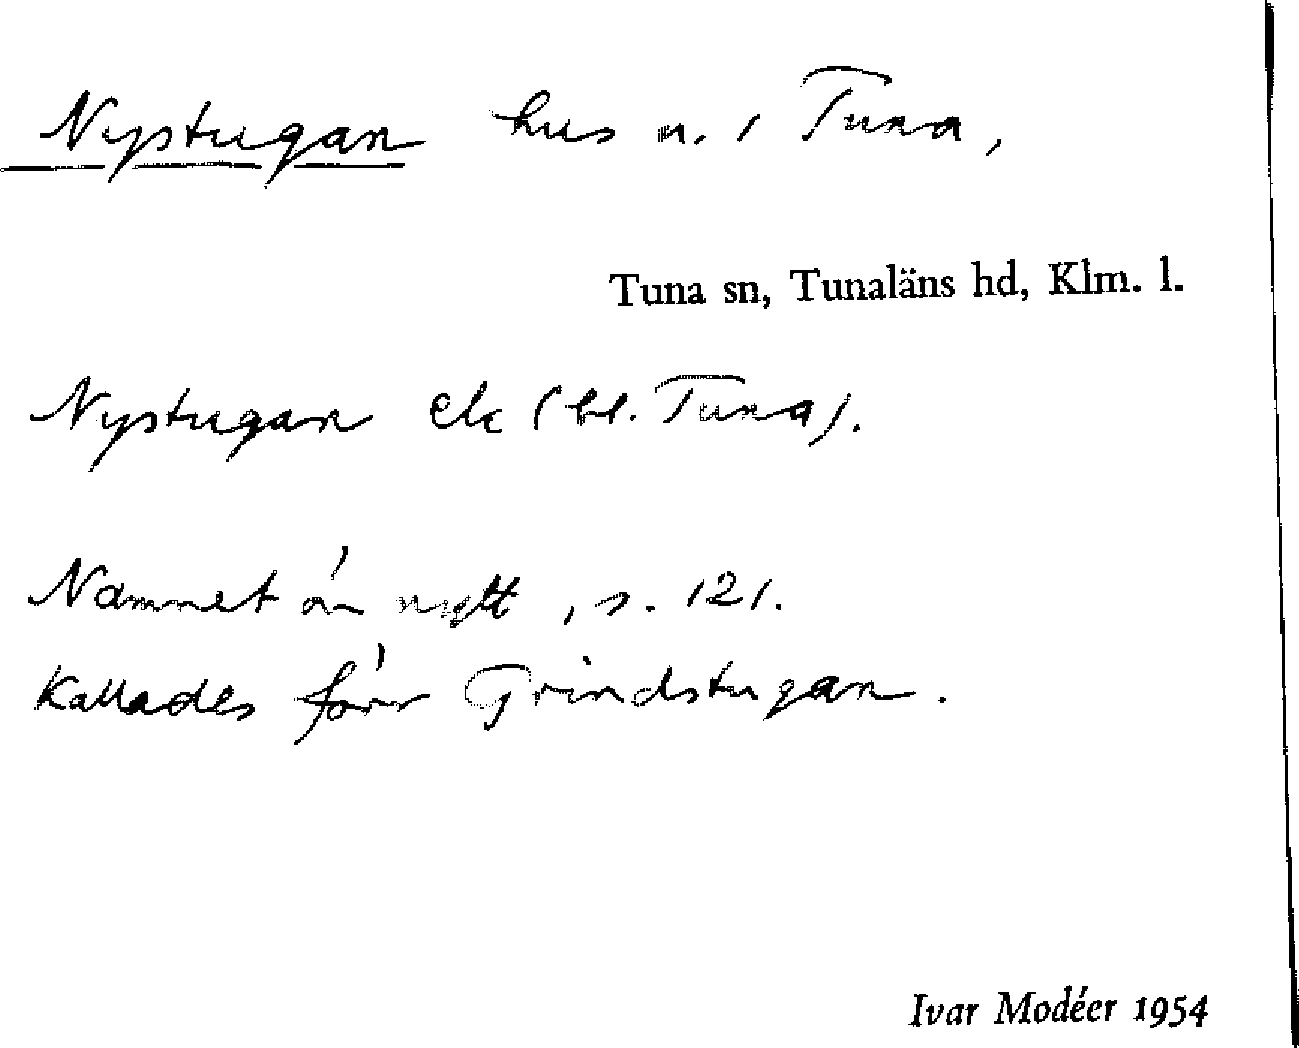 Nystugan hus n. i Tuna,
Tuna sn, Tunaläns hd, Klm. l.
Nystugan ek (bl. Tuna).
Namnet är nytt, s. 121.
Kallades förr Grindstugan.
Ivar Modéer 1954